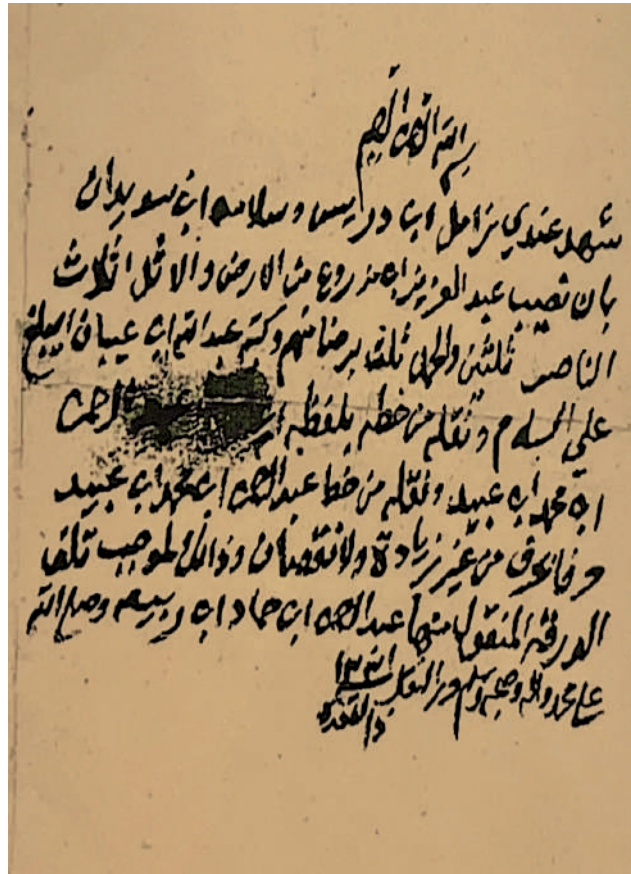 بسم الله الرحمن الرحيم
شهد عندي زامل ابن دريس وسلامه ابن سويدان
بان نصيب عبد العزيز ابن مزروع من الارض والاثل اثلاث
الناصر ثلثين والحمد ثلث برضا منهم وكتبه عبد الله ابن عيبان
علي المسلم ونقله من خطه بلفظه الرحمن
ابن محمد ابن عبيد ونقله من خط عبد الرحمن ابن محمد ابن عبيد
حرفا بحرف من غير زيادة ولا نقصان وذالك لموجب تلف
الورقة المنقول منها عبد الرحمن ابن حماد ابن ربيعه وصلى الله
على محمد واله وصحبه وسلم
ذا القعدة